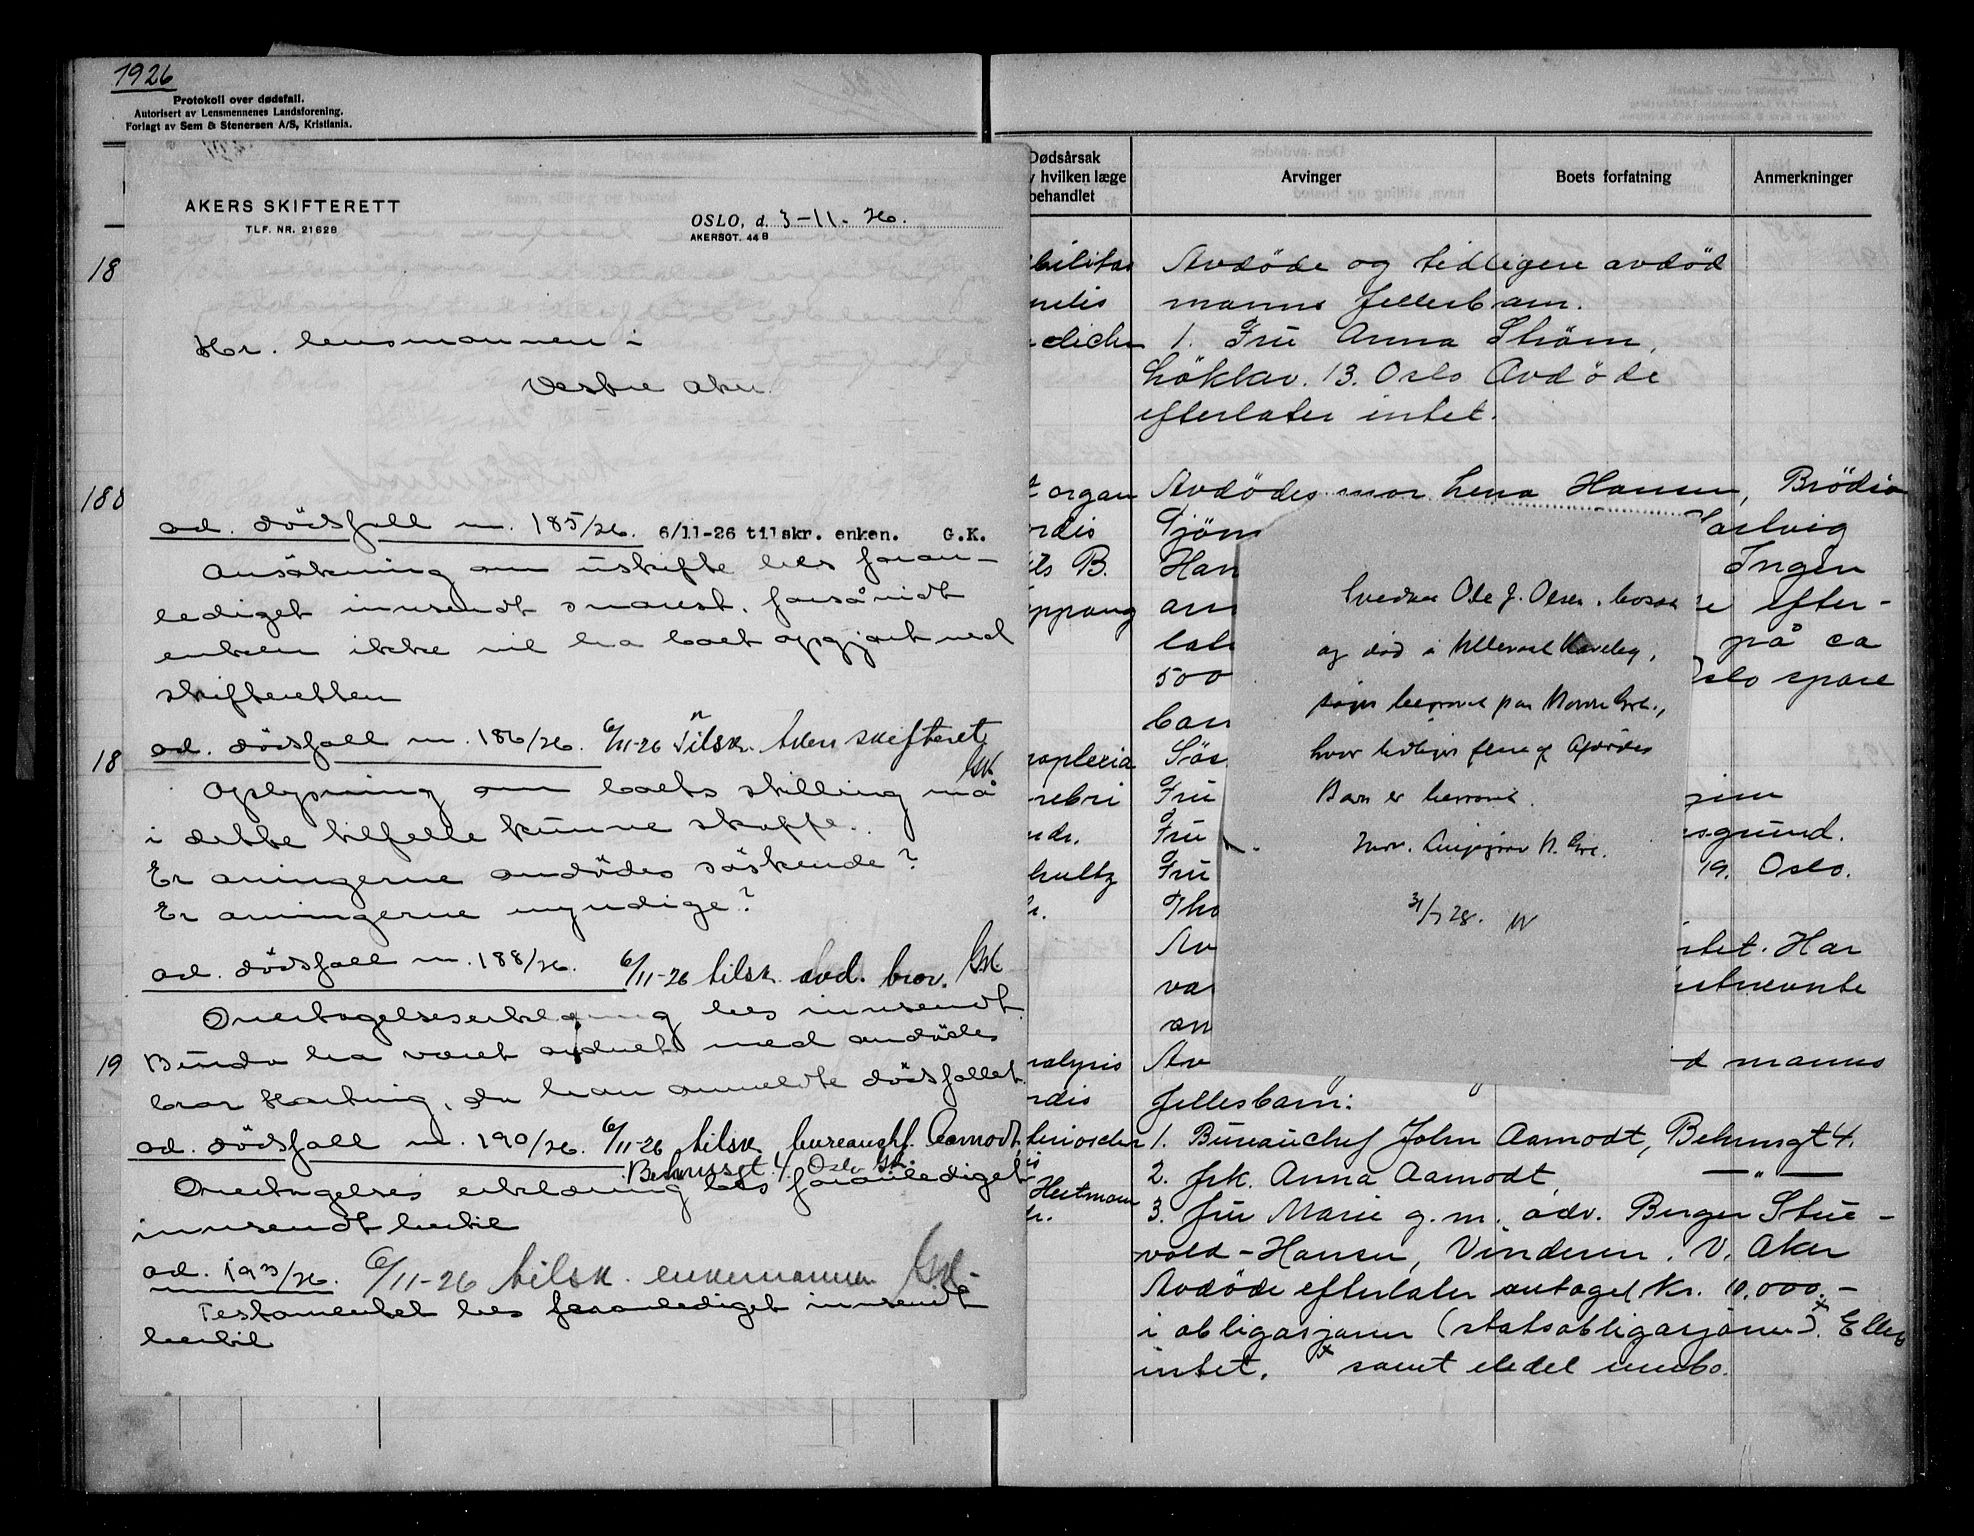 1926
Protokoll over dødsfall.
Autorisert av Lensmennenes Landsforening.
Forlagt av Sem & Stenersen A/S, Kristiania.
AKERS SKIFTERETT
TLF. NR. 21628
OSLO, d. 3-11-26.
AKERSGT. 44 B
18
Hr. lensmannen i
Vestre Aker
188
ad. dødsfall nr. 185/26. 6/11-26 tilskr. enken. G.K.
Ansøkning om uskifte bes foran-
lediget innsendt snarest, forsåvidt
enken ikke vil ha boet opgjort ved
skifteretten
18
ad. dødsfall nr. 186/26. 6/11-26 Tilskr. Aker skifterett
GK
Oplysning om boets stilling må
i dette tilfelle kunne skaffe.
Er arvingerne avdødes søskende?
Er arvingerne myndige?
ad. dødsfall nr. 188/26. 6/11-26 tilsk. avd. bror. GK.
Overtagelseserklæring bes innsendt.
19
Burde ha været ordnet med avdødes
bror Hartvig, da han anmeldte dødsfallet.
ad. dødsfall nr. 190/26. 6/11-26 tilsk. bureauchf. Aamodt,
Behrensgt. 4. Oslo GK.
Overtagelses erklæring bes foranlediget
innsendt hertil
ad. 193/26. 6/11-26 tilsk. enkemannen GK.
Testamentet bes foranlediget innsendt
hertil
Dødsårsak
v hvilken læge
behandlet
Arvinger
Boets forfatning
Anmerkninger
bilitas Avdøde og tidligere avdød
nilis manns fellesbarn.
1. Fru Anna Strøm,
Løkkav. 13. Oslo Avdøde
efterlater intet.
organ Avdødes mor Lena Hansen, Brødre
rdis Tjøm Hartvig
B. Han Ingen
ppang efter-
på ca
500 Oslo spare
oplexia Søs
rebri Fru
ndr. Fru sgrund.
hultz Fru 19. Oslo.
r. Tho
Av Har
va
an
ralysis Av d manns
rdis fellesbarn:
1. Bureauchef John Aamodt, Behrensgt 4.
2. frk. Anna Aamodt, — " —
Hertmann 3. fru Marie g.m. adv. Birger Stue-
vold-Hansen, Vinderen. V. Aker
Avdøde efterlater antagel. kr. 10.000.-
i obligasjoner (statsobligasjoner)x. Ellers
intet. x samt en del innbo.
Ole J. Olsen, bosat
og død i Ullevaal Haveby,
begravet paa Nordre Grl.,
hvor tidligere flere af Afdødes
Barn er begravet.
N. Grl.
31/7 28.